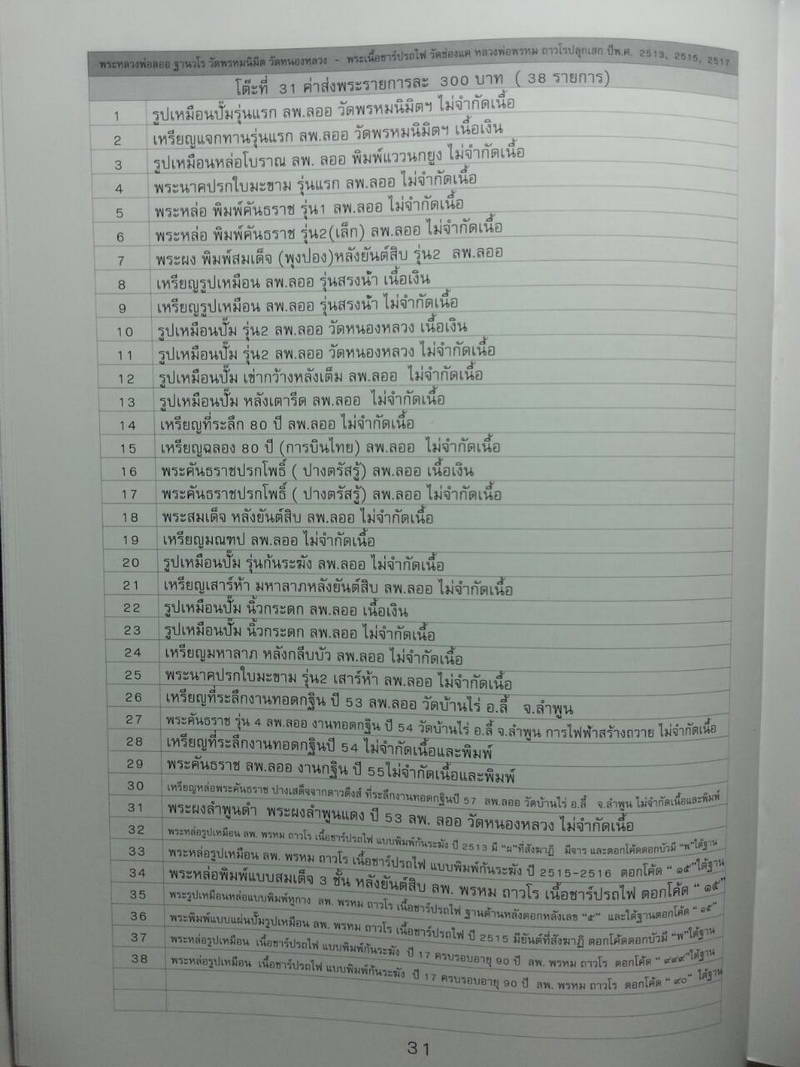 พระหลวงพ่อลออ ฐานวโร วัดพรหมนิมิต วัดหนองหลวง - พระเนื้อชาร์ปรถไฟ วัดช่องแค หลวงพ่อพรหม ถาวโรปลุกเสก ปีพ.ศ. 2513, 2515, 2517
โต๊ะที่ 31 ค่าส่งพระรายการละ 300 บาท ( 38 รายการ)
1 รูปเหมือนปั๊มรุ่นแรก ลพ.ลออ วัดพรหมนิมิตฯ ไม่จำกัดเนื้อ
2 เหรียญแจกทานรุ่นแรก ลพ.ลออ วัดพรหมนิมิตฯ เนื้อเงิน
3 รูปเหมือนหล่อโบราณ ลพ. ลออ พิมพ์แววนกยูง ไม่จำกัดเนื้อ
4 พระนาคปรกใบมะขาม รุ่นแรก ลพ.ลออ ไม่จำกัดเนื้อ
5 พระหล่อ พิมพ์คันธราช รุ่น1 ลพ.ลออ ไม่จำกัดเนื้อ
6 พระหล่อ พิมพ์คันธราช รุ่น2(เล็ก) ลพ.ลออ ไม่จำกัดเนื้อ
7 พระผง พิมพ์สมเด็จ (พุงปอง)หลังยันต์สิบ รุ่น2 ลพ.ลออ
8 เหรียญรูปเหมือน ลพ.ลออ รุ่นสรงน้ำ เนื้อเงิน
9 เหรียญรูปเหมือน ลพ.ลออ รุ่นสรงน้ำ ไม่จำกัดเนื้อ
10 รูปเหมือนปั๊ม รุ่น2 ลพ.ลออ วัดหนองหลวง เนื้อเงิน
11 รูปเหมือนปั๊ม รุ่น2 ลพ.ลออ วัดหนองหลวง ไม่จำกัดเนื้อ
12 รูปเหมือนปั๊ม เข่ากว้างหลังเต็ม ลพ.ลออ ไม่จำกัดเนื้อ
13 รูปเหมือนปั๊ม หลังเตารีด ลพ.ลออ ไม่จำกัดเนื้อ
14 เหรียญที่ระลึก 80 ปี ลพ.ลออ ไม่จำกัดเนื้อ
15 เหรียญฉลอง 80 ปี (การบินไทย) ลพ.ลออ ไม่จำกัดเนื้อ
16 พระคันธราชปรกโพธิ์ ( ปางตรัสรู้) ลพ.ลออ เนื้อเงิน
17 พระคันธราชปรกโพธิ์ ( ปางตรัสรู้) ลพ.ลออ ไม่จำกัดเนื้อ
18 พระสมเด็จ หลังยันต์สิบ ลพ.ลออ ไม่จำกัดเนื้อ
19 เหรียญมณฑป ลพ.ลออ ไม่จำกัดเนื้อ
20 รูปเหมือนปั๊ม รุ่นก้นระฆัง ลพ.ลออ ไม่จำกัดเนื้อ
21 เหรียญเสาร์ห้า มหาลาภหลังยันต์สิบ ลพ.ลออ ไม่จำกัดเนื้อ
22 รูปเหมือนปั๊ม นิ้วกระดก ลพ.ลออ เนื้อเงิน
23 รูปเหมือนปั๊ม นิ้วกระดก ลพ.ลออ ไม่จำกัดเนื้อ
24 เหรียญมหาลาภ หลังกลีบบัว ลพ.ลออ ไม่จำกัดเนื้อ
25 พระนาคปรกใบมะขาม รุ่น2 เสาร์ห้า ลพ.ลออ ไม่จำกัดเนื้อ
26 เหรียญที่ระลึกงานทอดกฐิน ปี 53 ลพ.ลออ วัดบ้านไร่ อ.ลี้ จ.ลำพูน
27 พระคันธราช รุ่น 4 ลพ.ลออ งานทอดกฐิน ปี 54 วัดบ้านไร่ อ.ลี้ จ.ลำพูน การไฟฟ้าสร้างถวาย ไม่จำกัดเนื้อ
28 เหรียญที่ระลึกงานทอดกฐินปี 54 ไม่จำกัดเนื้อและพิมพ์
29 พระคันธราช ลพ.ลออ งานกฐิน ปี 55ไม่จำกัดเนื้อและพิมพ์
30 เหรียญหล่อพระคันธราช ปางเสด็จจากดาวดึงส์ ที่ระลึกงานทอดกฐินปี 57 ลพ.ลออ วัดบ้านไร่ อ.ลี้ จ.ลำพูน ไม่จำกัดเนื้อและพิมพ์
31 พระผงลำพูนดำ พระผงลำพูนแดง ปี 53 ลพ. ลออ วัดหนองหลวง ไม่จำกัดเนื้อ
32 พระหล่อรูปเหมือน ลพ. พรหม ถาวโร เนื้อชาร์ปรถไฟ แบบพิมพ์ก้นระฆัง ปี 2513 มี "ม"ที่สังฆาฏิ มีจาร และตอกโค้ตดอกบัวมี "พ"ใต้ฐาน
33 พระหล่อรูปเหมือน ลพ. พรหม ถาวโร เนื้อชาร์ปรถไฟ แบบพิมพ์ก้นระฆัง ปี 2515-2516 ตอกโค้ด " ๑๕"ใต้ฐาน
34 พระหล่อพิมพ์แบบสมเด็จ 3 ชั้น หลังยันต์สิบ ลพ. พรหม ถาวโร เนื้อชาร์ปรถไฟ ตอกโค้ด " ๑๕"
35 พระรูปเหมือนหล่อแบบพิมพ์หูกาง ลพ. พรหม ถาวโร เนื้อชาร์ปรถไฟ ฐานด้านหลังตอกหลังเลข "๕" และใต้ฐานตอกโค้ด " ๑๕"
36 พระพิมพ์แบบแผ่นปั๊มรูปเหมือน ลพ. พรหม ถาวโร เนื้อชาร์ปรถไฟ ปี 2515 มียันต์ที่สังฆาฏิ ตอกโค้ดดอกบัวมี "พ"ใต้ฐาน
37 พระหล่อรูปเหมือน เนื้อชาร์ปรถไฟ แบบพิมพ์ก้นระฆัง ปี 17 ครบรอบอายุ 90 ปี ลพ. พรหม ถาวโร ตอกโค้ด " ๙๙๙"ใต้ฐาน
38 พระหล่อรูปเหมือน เนื้อชาร์ปรถไฟ แบบพิมพ์ก้นระฆัง ปี 17 ครบรอบอายุ 90 ปี ลพ. พรหม ถาวโร ตอกโค้ด " ๙๐" ใต้ฐาน
31